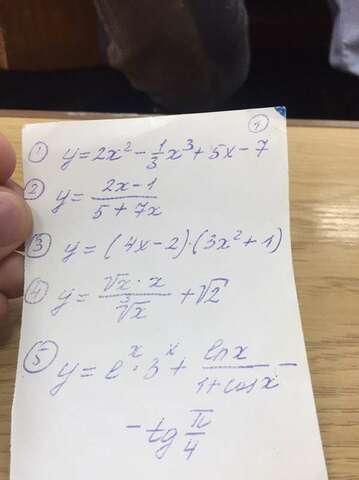 4
① y = 2x² - 1/3 x³ + 5x - 7
② y = (2x - 1)/(5 + 7x)
③ y = (4x - 2)·(3x² + 1)
④ y = (√x · x)/∛x + √2
⑤ y = eˣ · 3ˣ + (ln x)/(1 + cos x) -
- tg π/4